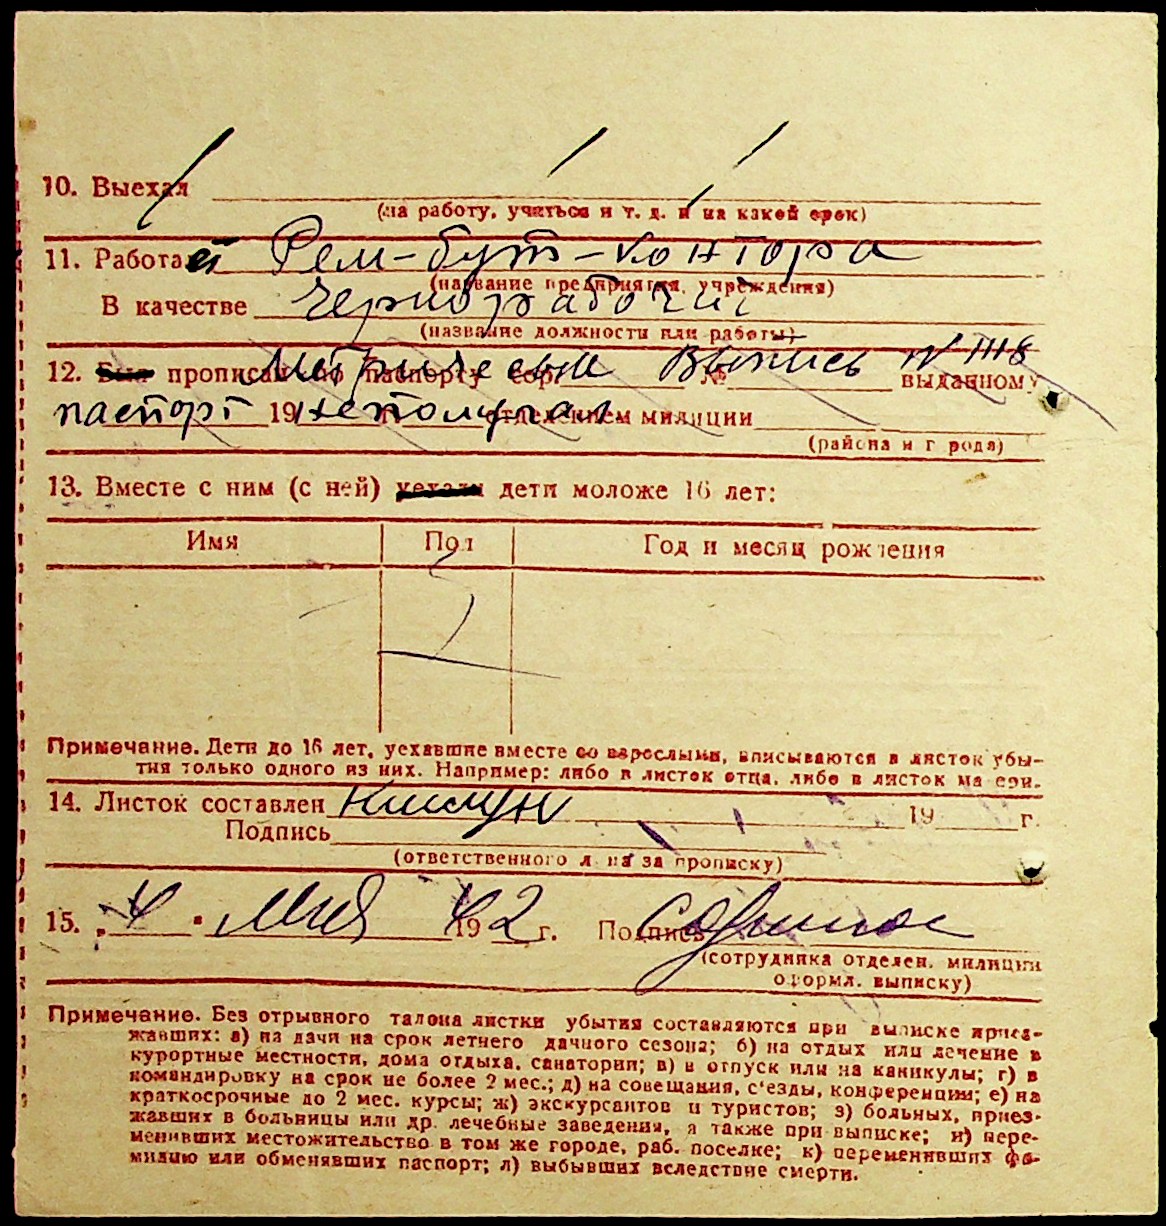 10. Выехал
(на работу, учиться и т. д. и на какой срок)
11. Работает Рем-бут-контора
(название предприятия, учреждения)
В качестве Чернорабочий
(название должности или работы)
12. Был прописан по паспорту сер. № выданному
Метрическая Выпись № 1118
паспорт 19 отделением милиции
не получал
(района и города)
13. Вместе с ним (с ней) уехали дети моложе 16 лет:
Имя Пол Год и месяц рождения
Примечание. Дети до 16 лет, уехавшие вместе со взрослыми, вписываются в листок убы-
тия только одного из них. Например: либо в листок отца, либо в листок матери.
14. Листок составлен 19 г.
Подпись
(ответственного лица за прописку)
15. „4" Мая 1942 г. Подпись
(сотрудника отделен. милиции
оформл. выписку)
Примечание. Без отрывного талона листки убытия составляются при выписке приез-
жавших: а) на дачи на срок летнего дачного сезона; б) на отдых или лечение в
курортные местности, дома отдыха, санатории; в) в отпуск или на каникулы; г) в
командировку на срок не более 2 мес.; д) на совещания, с'езды, конференции; е) на
краткосрочные до 2 мес. курсы; ж) экскурсантов и туристов; з) больных, приез-
жавших в больницы или др. лечебные заведения, а также при выписке; и) пере-
менивших местожительство в том же городе, раб. поселке; к) переменивших фа-
милию или обменявших паспорт; л) выбывших вследствие смерти.